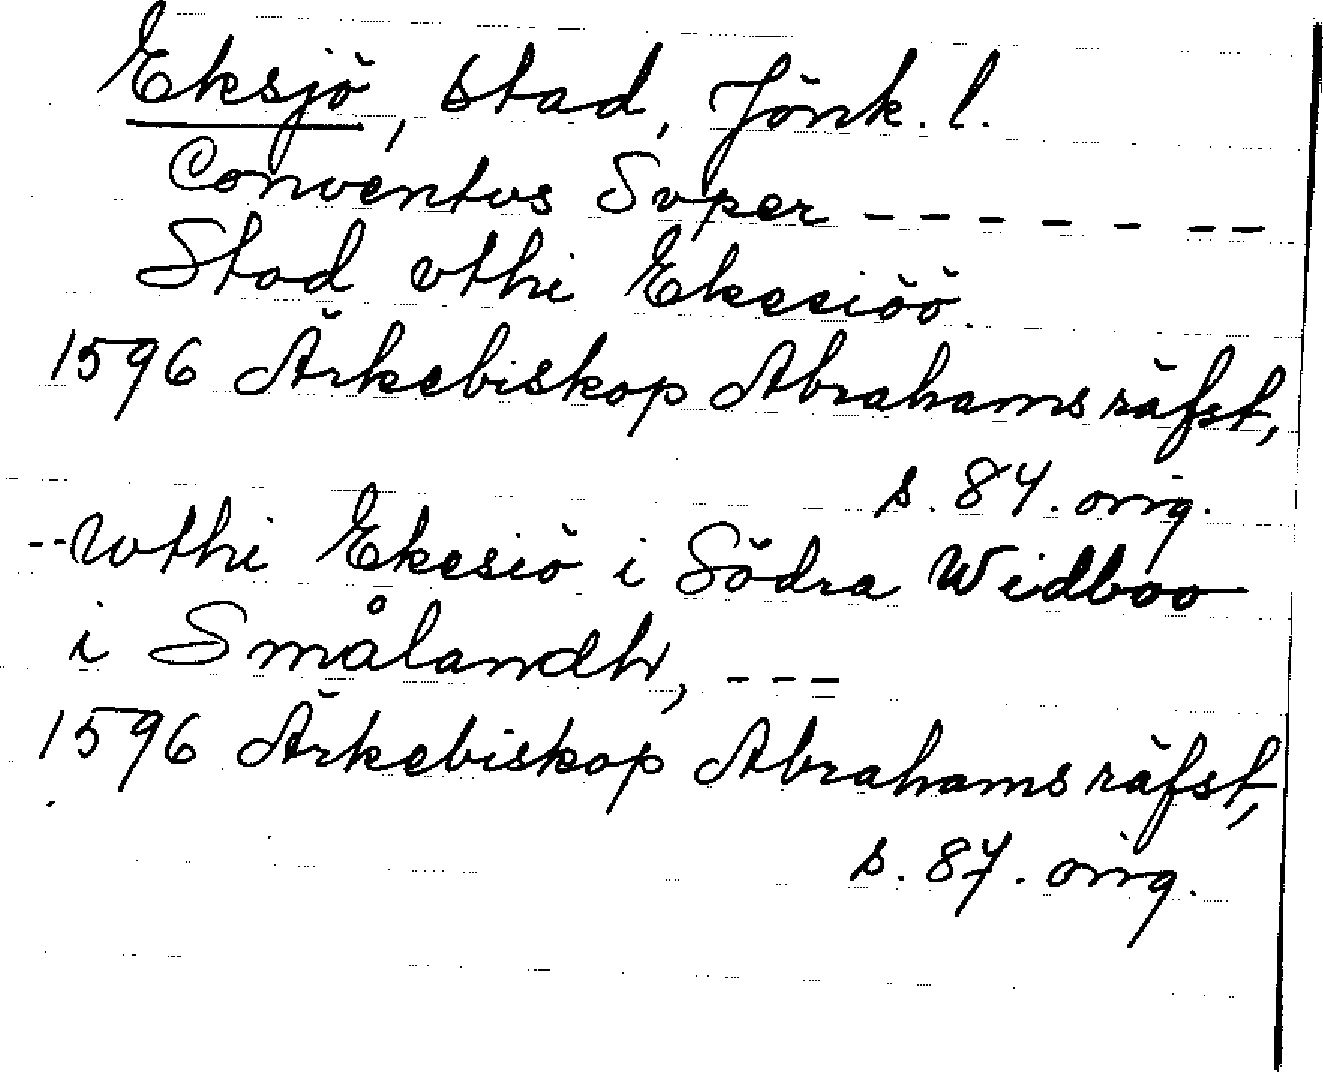 Eksjö, stad, Jönk. l.
Conventus Super - - - - - - -
Stad vthi Ekesiöö.
1596 Ärkebiskop Abrahams räfst,
s. 84. orig.
--wthi Ekesiö i Södra Widboo
i Smålandh, - - -
1596 Ärkebiskop Abrahams räfst,
s. 87. orig.